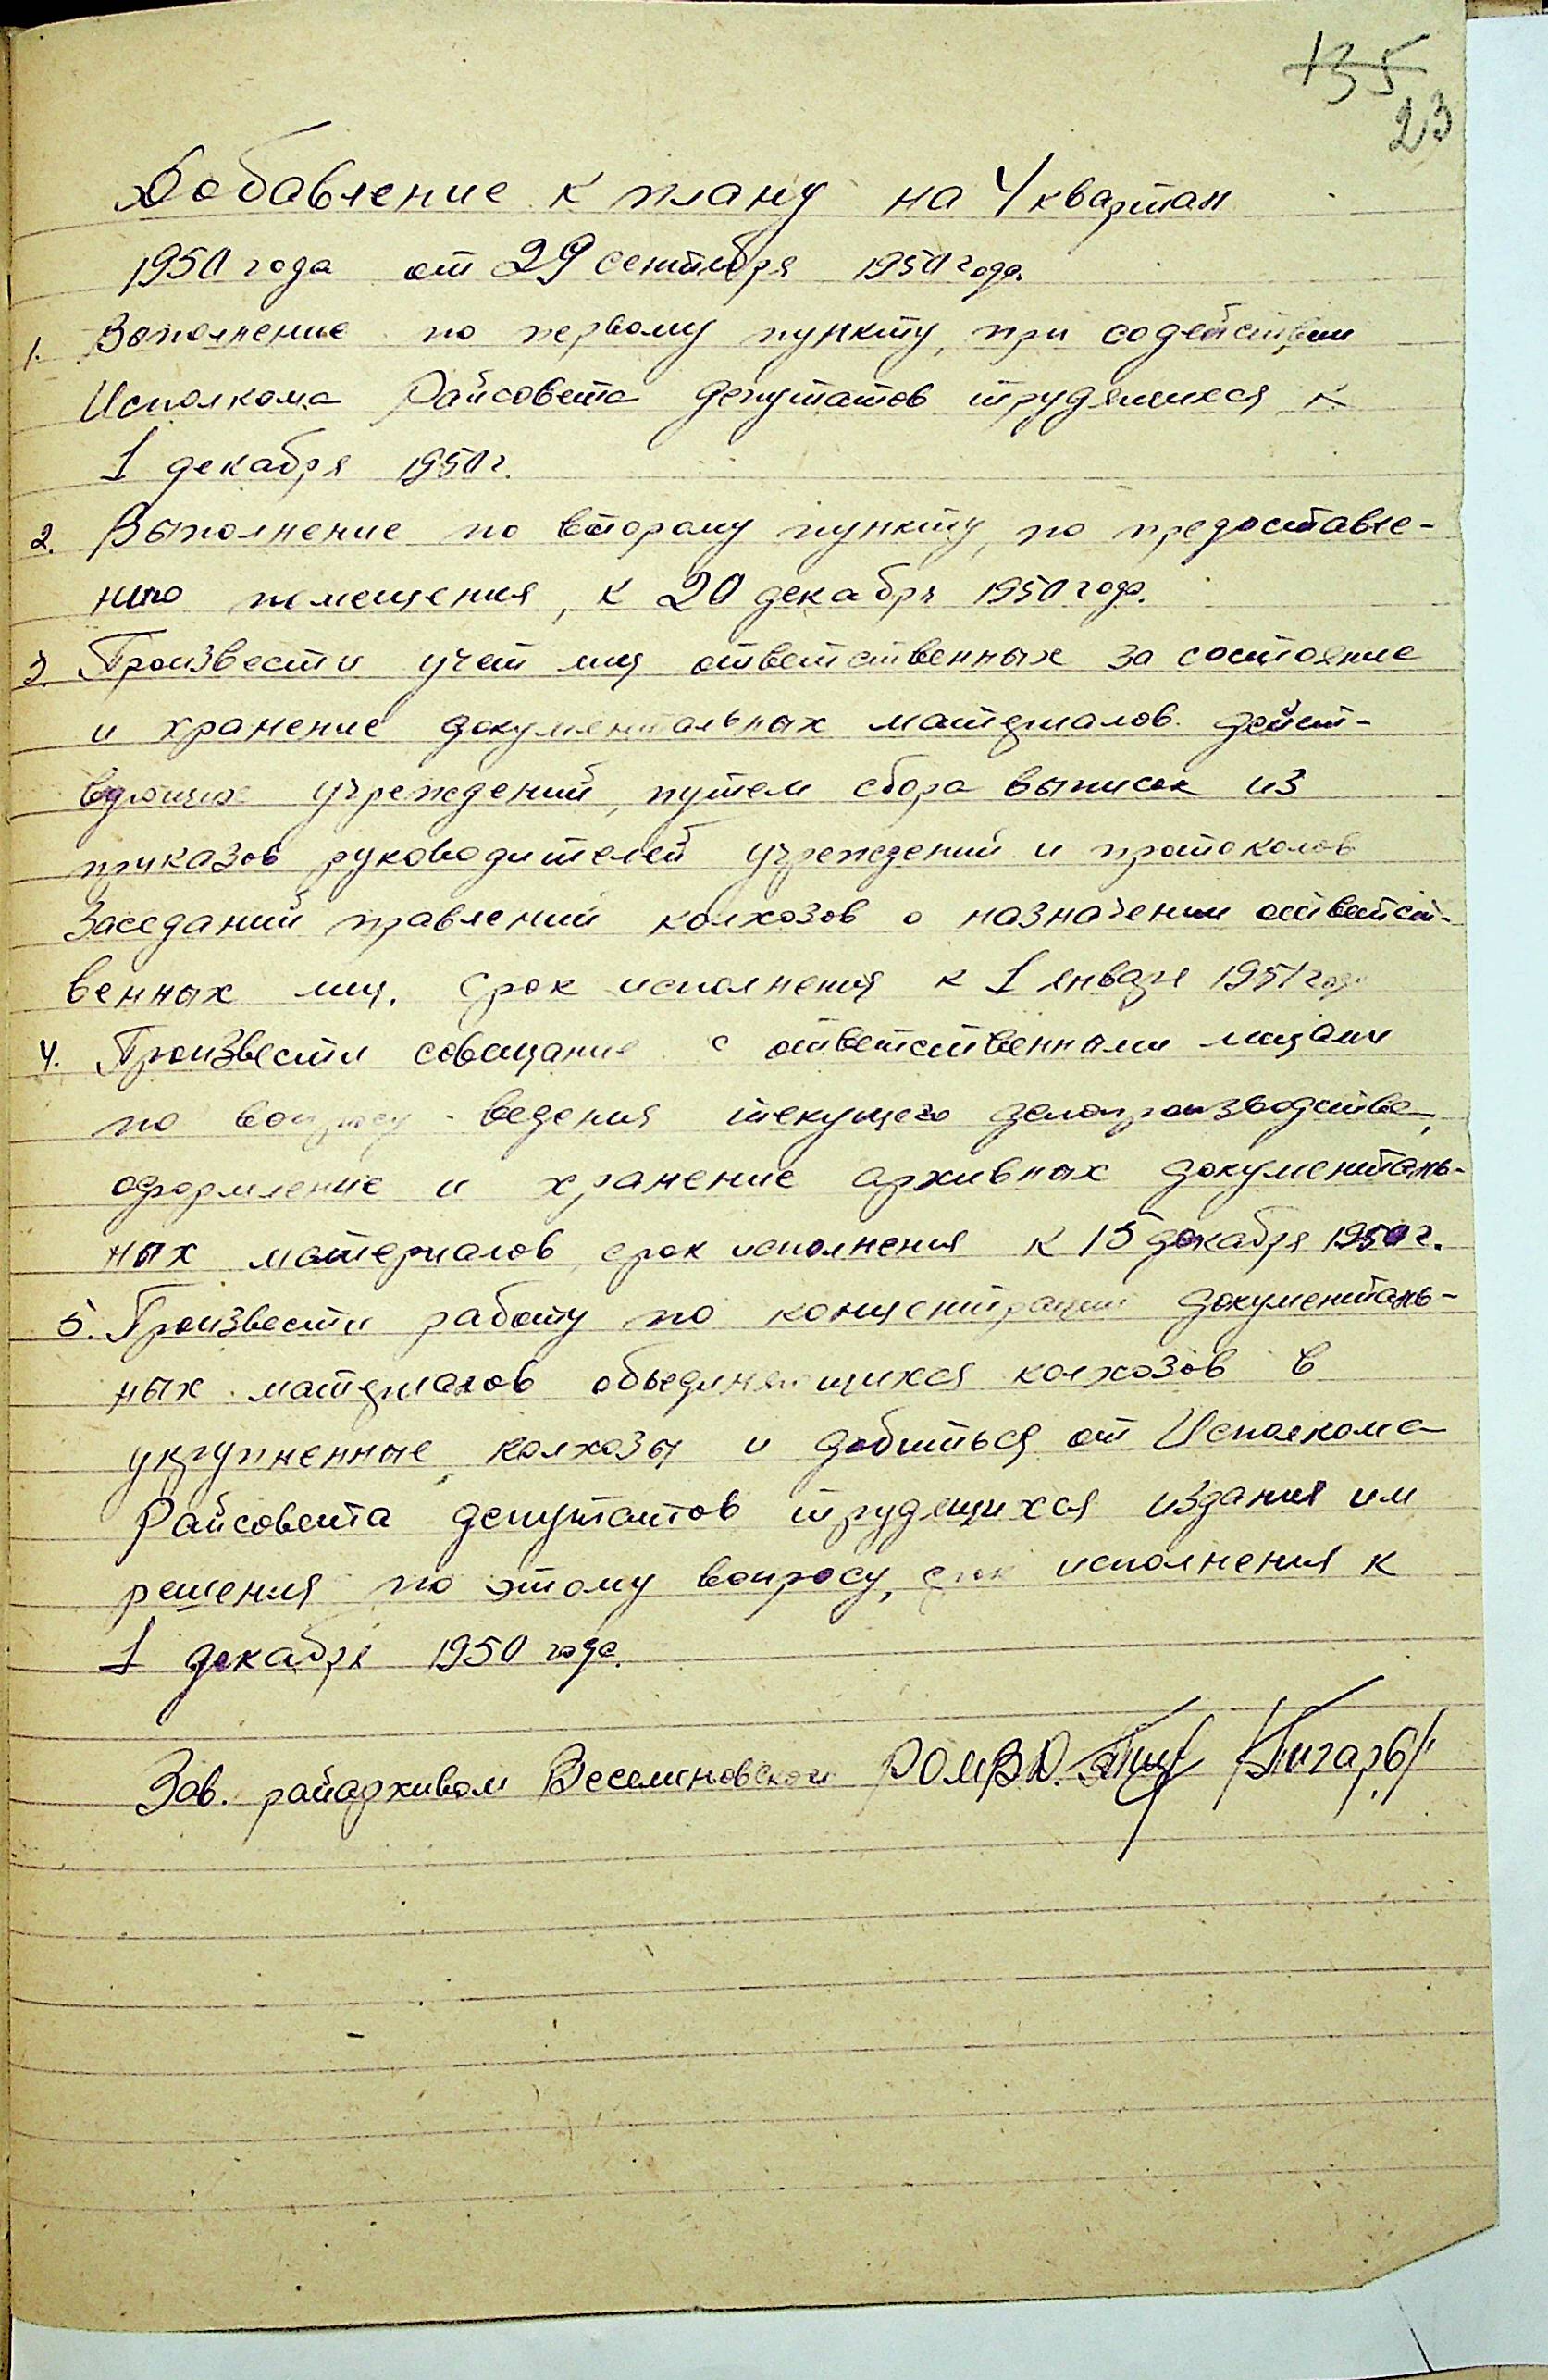 135
23
Добавление к плану на 4 квартал
1950 года от 29 сентября 1950 года.
1. Выполнение по первому пункту, при содействии
Исполкома Райсовета депутатов трудящихся к
1 декабря 1950 г.
2. Выполнение по второму пункту, по предоставле-
нию помещения, к 20 декабря 1950 года.
3. Произвести учет лиц ответственных за состояние
и хранение документальных материалов дейст-
вующих учреждений, путем сбора выписок из
приказов руководителей учреждений и протоколов
заседаний правлений колхозов о назначении ответст-
венных лиц. Срок исполнения к 1 января 1951 года
4. Произвести совещание с ответственными лицами
по вопросу ведения текущего делопроизводства,
оформление и хранение архивных документаль-
ных материалов, срок исполнения к 15 декабря 1950 г.
5. Произвести работу по концентрации документаль-
ных материалов объединяющихся колхозов в
укрупненные колхозы и добиться от Исполкома
Райсовета депутатов трудящихся издания им
решения по этому вопросу, срок исполнения к
1 декабря 1950 года.
Зав. райархивом Веселиновского РОМВД.